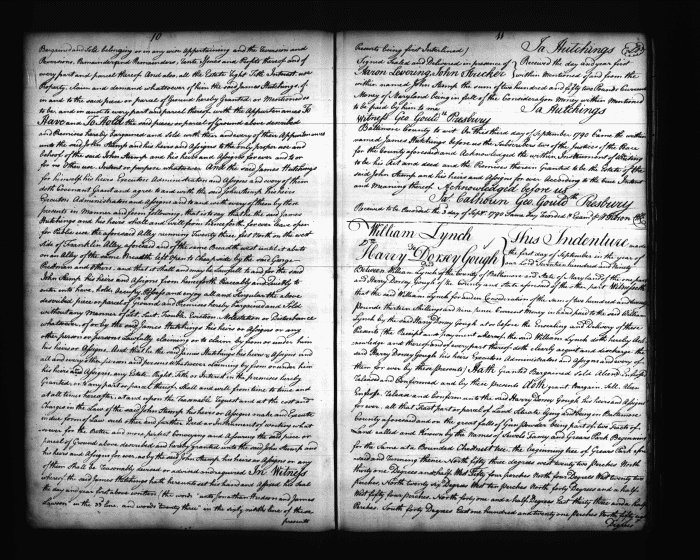 10
Bargained and Sold belonging or in any wise Appertaining and the Reversion and
Reversions, Remainder and Remainders, Rents Issues and Profits thereof and of
every part and parcel thereof And also all the Estate Right Title Interest use
Property, claim and demand whatsoever of him the said James Hutchings of
in and to the said piece or parcel of Ground hereby Granted or Mentioned so
to be and in and to every part and parcel thereof with the Appurtenances To
Have and To Hold the said piece or parcel of Ground above described
and Premises hereby Bargained and Sold with them and every of them Appurtenances
unto the said John Stump and his heirs and Assigns to the only proper use and
behoof of the said John Stump and his heirs and Assigns forever and to or
for no other use intent or purpose whatsoever And the said James Hutchings
for himself his Heirs Executors Administrators and Assigns and every of them
doth Covenant Grant and agree to and with the said John Stump his heirs
Executors Administrators and Assigns and to and with every of them by these
presents in Manner and form following, that is to say that he the said James
Hutchings and his heirs shall and will from henceforth forever leave open
for Publick use the aforesaid Alley running Twenty three feet North on the west
side of Franklin Alley aforesaid and of the same Breadth west until it abuts
on an Alley of the same Breadth left open to Cheapside by the said George
Peckman and others, and that it shall and may be Lawfull to and for the said
John Stump his Heirs and Assigns from henceforth Peaceably and Quietly to
enter into have, hold, occupy, Possess and enjoy all and Singular the above
described piece or parcel of ground and Premises hereby bargained and Sold
without any manner of Let Suit Trouble Eviction Molestation or Disturbance
whatsoever, of or by the said James Hutchings his heirs or Assigns or any
other person or persons Lawfully claiming or to claim by from or under him
his heirs or Assigns. And that he the said James Hutchings his heirs & Assigns and
all and every other person and persons whatsoever claiming by from or under him
his heirs and Assigns any Estate Right Title or Interest in the premises hereby
Granted, or to any part or parcel thereof, shall and will from time to time and
at all times hereafter, at and upon the Reasonable Request and at the cost and
Charges in the Law of the said John Stump his heirs or Assigns make and Execute
in due form of Law such other and further Deed or Instrument of writing what
soever for the Better and more perfect Conveying and Assuring the said piece or
parcel of Ground above described and hereby Granted with the said John Stump and
his heirs and Assigns for ever as by the said John Stump his heirs or Assigns or any
of them shall be Reasonably devised or advised and required In Witness
whereof the said James Hutchings hath hereunto set his hand and Affixed his Seal
the day and year first above written (the words "unto Jonathan Hudson and James
Lawson" in the 33 line and words "twenty three" in the line of these
presents
11
Presents being first Interlined) Ja Hutchings Seal
Signed Sealed and Delivered in presence of Received the day and year first
Aaron Levering, John Stricker within Mentioned of and from the
within named John Stump the sum of two hundred and fifty two Pounds Current
Money of Maryland being in full of the Consideration Money within Mentioned
to be paid by him to me Ja Hutchings
Witness Geo Gould Presbury
Baltimore County to wit On this third day of September 1790 Came the within
named James Hutchings before us the Subscribers two of the Justices of the Peace
for the County aforesaid and Acknowledged the within Instrument of Writing
to be his Act and deed and the Premises therein Granted to be the Estate of the
said John Stump his heirs and Assigns for ever According to the true Intent
and Meaning thereof Acknowledged before us
Ja Calhoun Geo Gould Presbury
Received to be Recorded the 3 day of Sept 1790 Same day Recorded & Exam'd
William Lynch This Indenture made
Harry Dorsey Gough the first day of September in the year of
our Lord Seventeen hundred and Ninety
Between William Lynch of the County of Baltimore and State of Maryland of the one part
and Harry Dorsey Gough of the County and State aforesaid of the other part Witnesseth
that the said William Lynch for and in Consideration of the sum of two hundred and
Pounds thirteen Shillings and nine pence Current Money in hand paid to the said William
Lynch by the said Harry Dorsey Gough at or before the Ensealing and Delivery of these
Presents (the Receipt and payment whereof the said William Lynch doth hereby Ack
nowledge and thereof and of every part thereof doth clearly acquit and discharge the
said Harry Dorsey Gough his heirs Executors Administrators and Assigns and every of
them for ever by these presents) Hath Granted Bargained Sold Aliened Enfeoffed
Released and Confirmed and by these presents doth grant Bargain Sell Alien
Enfeoff Release and Confirm unto the said Harry Dorsey Gough his heirs and Assigns
for ever all that Tract part or parcel of Land situate lying and being in Baltimore
County aforesaid and on the great falls of Gun powder being part of two Tracts of
Land called and known by the Names of Sewels Fancy and Gregors Park Beginning
for the same at a Bounded Chesnut tree the beginning tree of Park afore
said and Running thence North fifty three degrees west twenty two perches North
thirty one Degrees and a half West Sixty four perches North four Degrees West twenty two
perches North twenty six Degrees West two perches North forty Degrees and a half
West fifty four perches North forty one and a half Degrees East thirty three and a half
Perches South forty Degrees East one hundred and twenty one Perches North fifty
Degrees